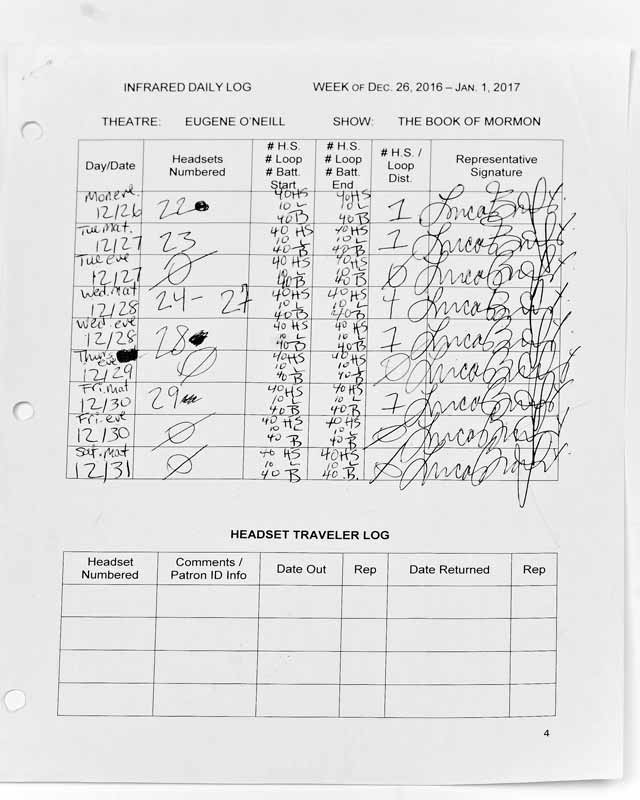 INFRARED DAILY LOG WEEK OF DEC. 26, 2016 – JAN. 1, 2017
THEATRE: EUGENE O'NEILL SHOW: THE BOOK OF MORMON
Day/Date
Headsets
Numbered
# H.S.
# Loop
# Batt.
Start
# H.S.
# Loop
# Batt.
End
# H.S. /
Loop
Dist.
Representative
Signature
Mon eve.
12/26
22
40 HS
10 L
40 B
40 HS
10 L
40 B
1
Tue Mat.
12/27
23
40 HS
10 L
40 B
40 HS
10 L
40 B
1
Tue eve
12/27
Ø
40 HS
10 L
40 B
40 HS
10 L
40 B
Ø
Wed. Mat
12/28
24 - 27
40 HS
10 L
40 B
40 HS
10 L
40 B
4
Wed. eve
12/28
28
40 HS
10 L
40 B
40 HS
10 L
40 B
1
Thurs
eve
12/29
Ø
40 HS
10 L
40 B
40 HS
10 L
40 B
Ø
Fri. mat
12/30
29
40 HS
10 L
40 B
40 HS
10 L
40 B
1
Fri. eve
12/30
Ø
40 HS
10 L
40 B
40 HS
10 L
40 B
Ø
Sat. Mat
12/31
Ø
40 HS
10 L
40 B
40 HS
10 L
40 B.
Ø
HEADSET TRAVELER LOG
Headset
Numbered
Comments /
Patron ID Info
Date Out
Rep
Date Returned
Rep
4